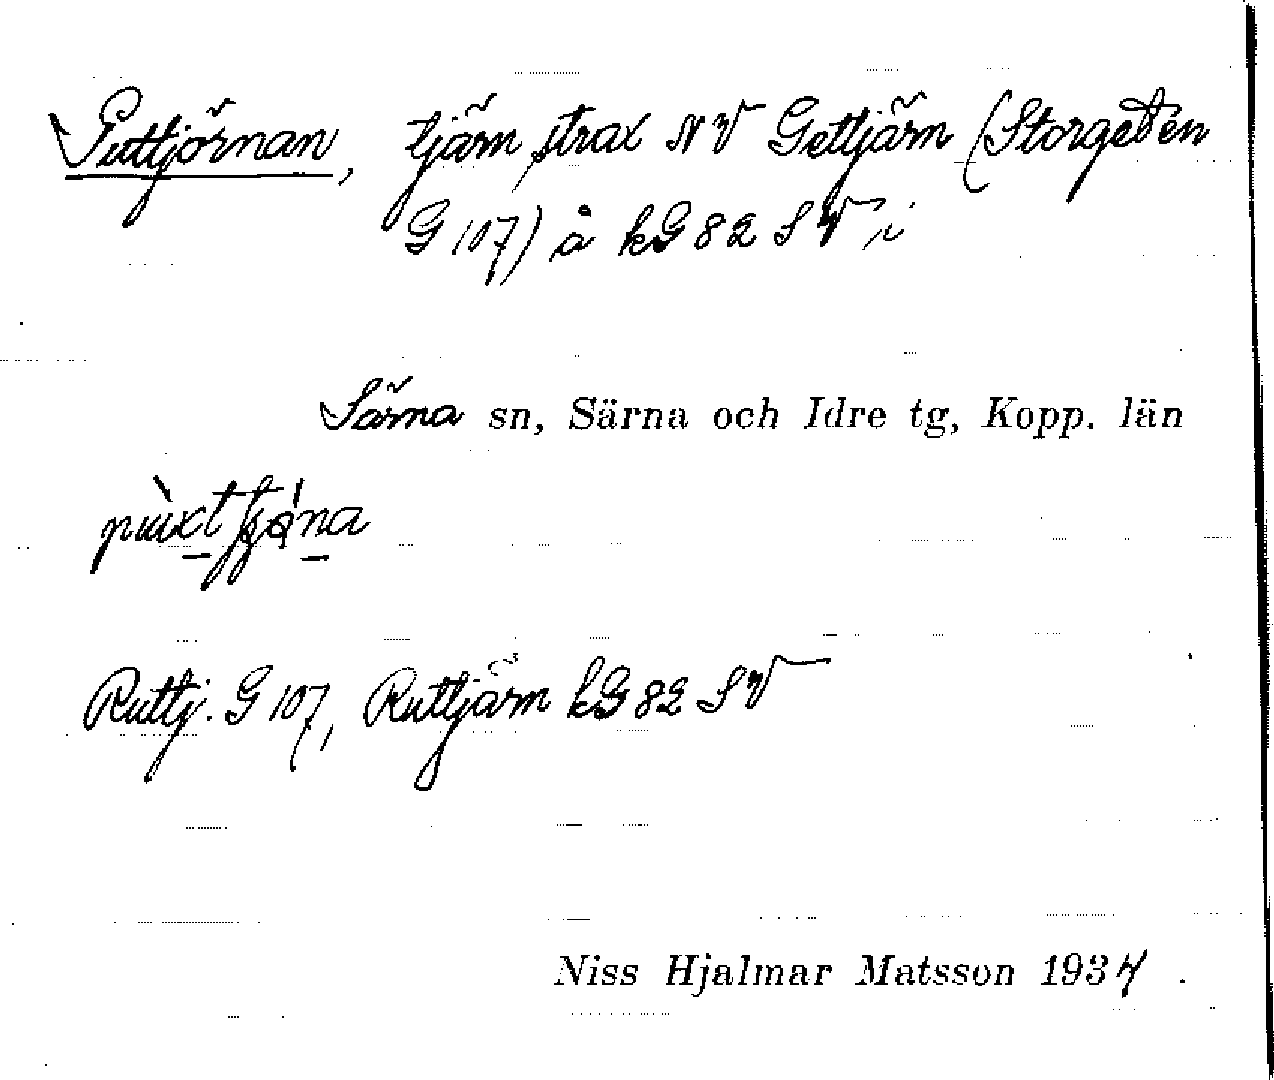 Puttjörnan, tjärn strax NV Gettjärn (Storgetten
G 107) å kG 82 SV i
Särna sn, Särna och Idre tg, Kopp. län
Ruttj. G 107, Ruttjärn kG 82 SV
Niss Hjalmar Matsson 1937.